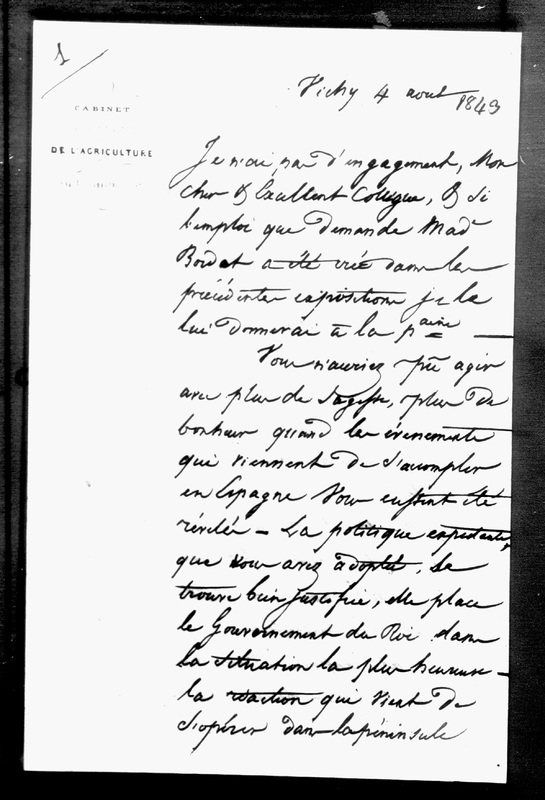 1
CABINET
DE L'AGRICULTURE
Vichy 4 aout 1843
Je n'ai pas d'engagement, Mon
cher & Excellent Collegue, & si
l'emploi que demande Mad^e
Bordet a été créé dans les
précédentes expositions je le
lui donnerai à la p^aine
Vous n'auriez pu agir
avec plus de sagesse, plus de
bonheur quand les évenements
qui viennent de s'accomplir
en Espagne Vous eussent été
révélés - La politique expectante,
que vous avez adoptée, se
trouve bien justifiée, elle place
le Gouvernement du Roi dans
la situation la plus heureuse -
la réaction qui vient de
s'opérer dans la péninsule